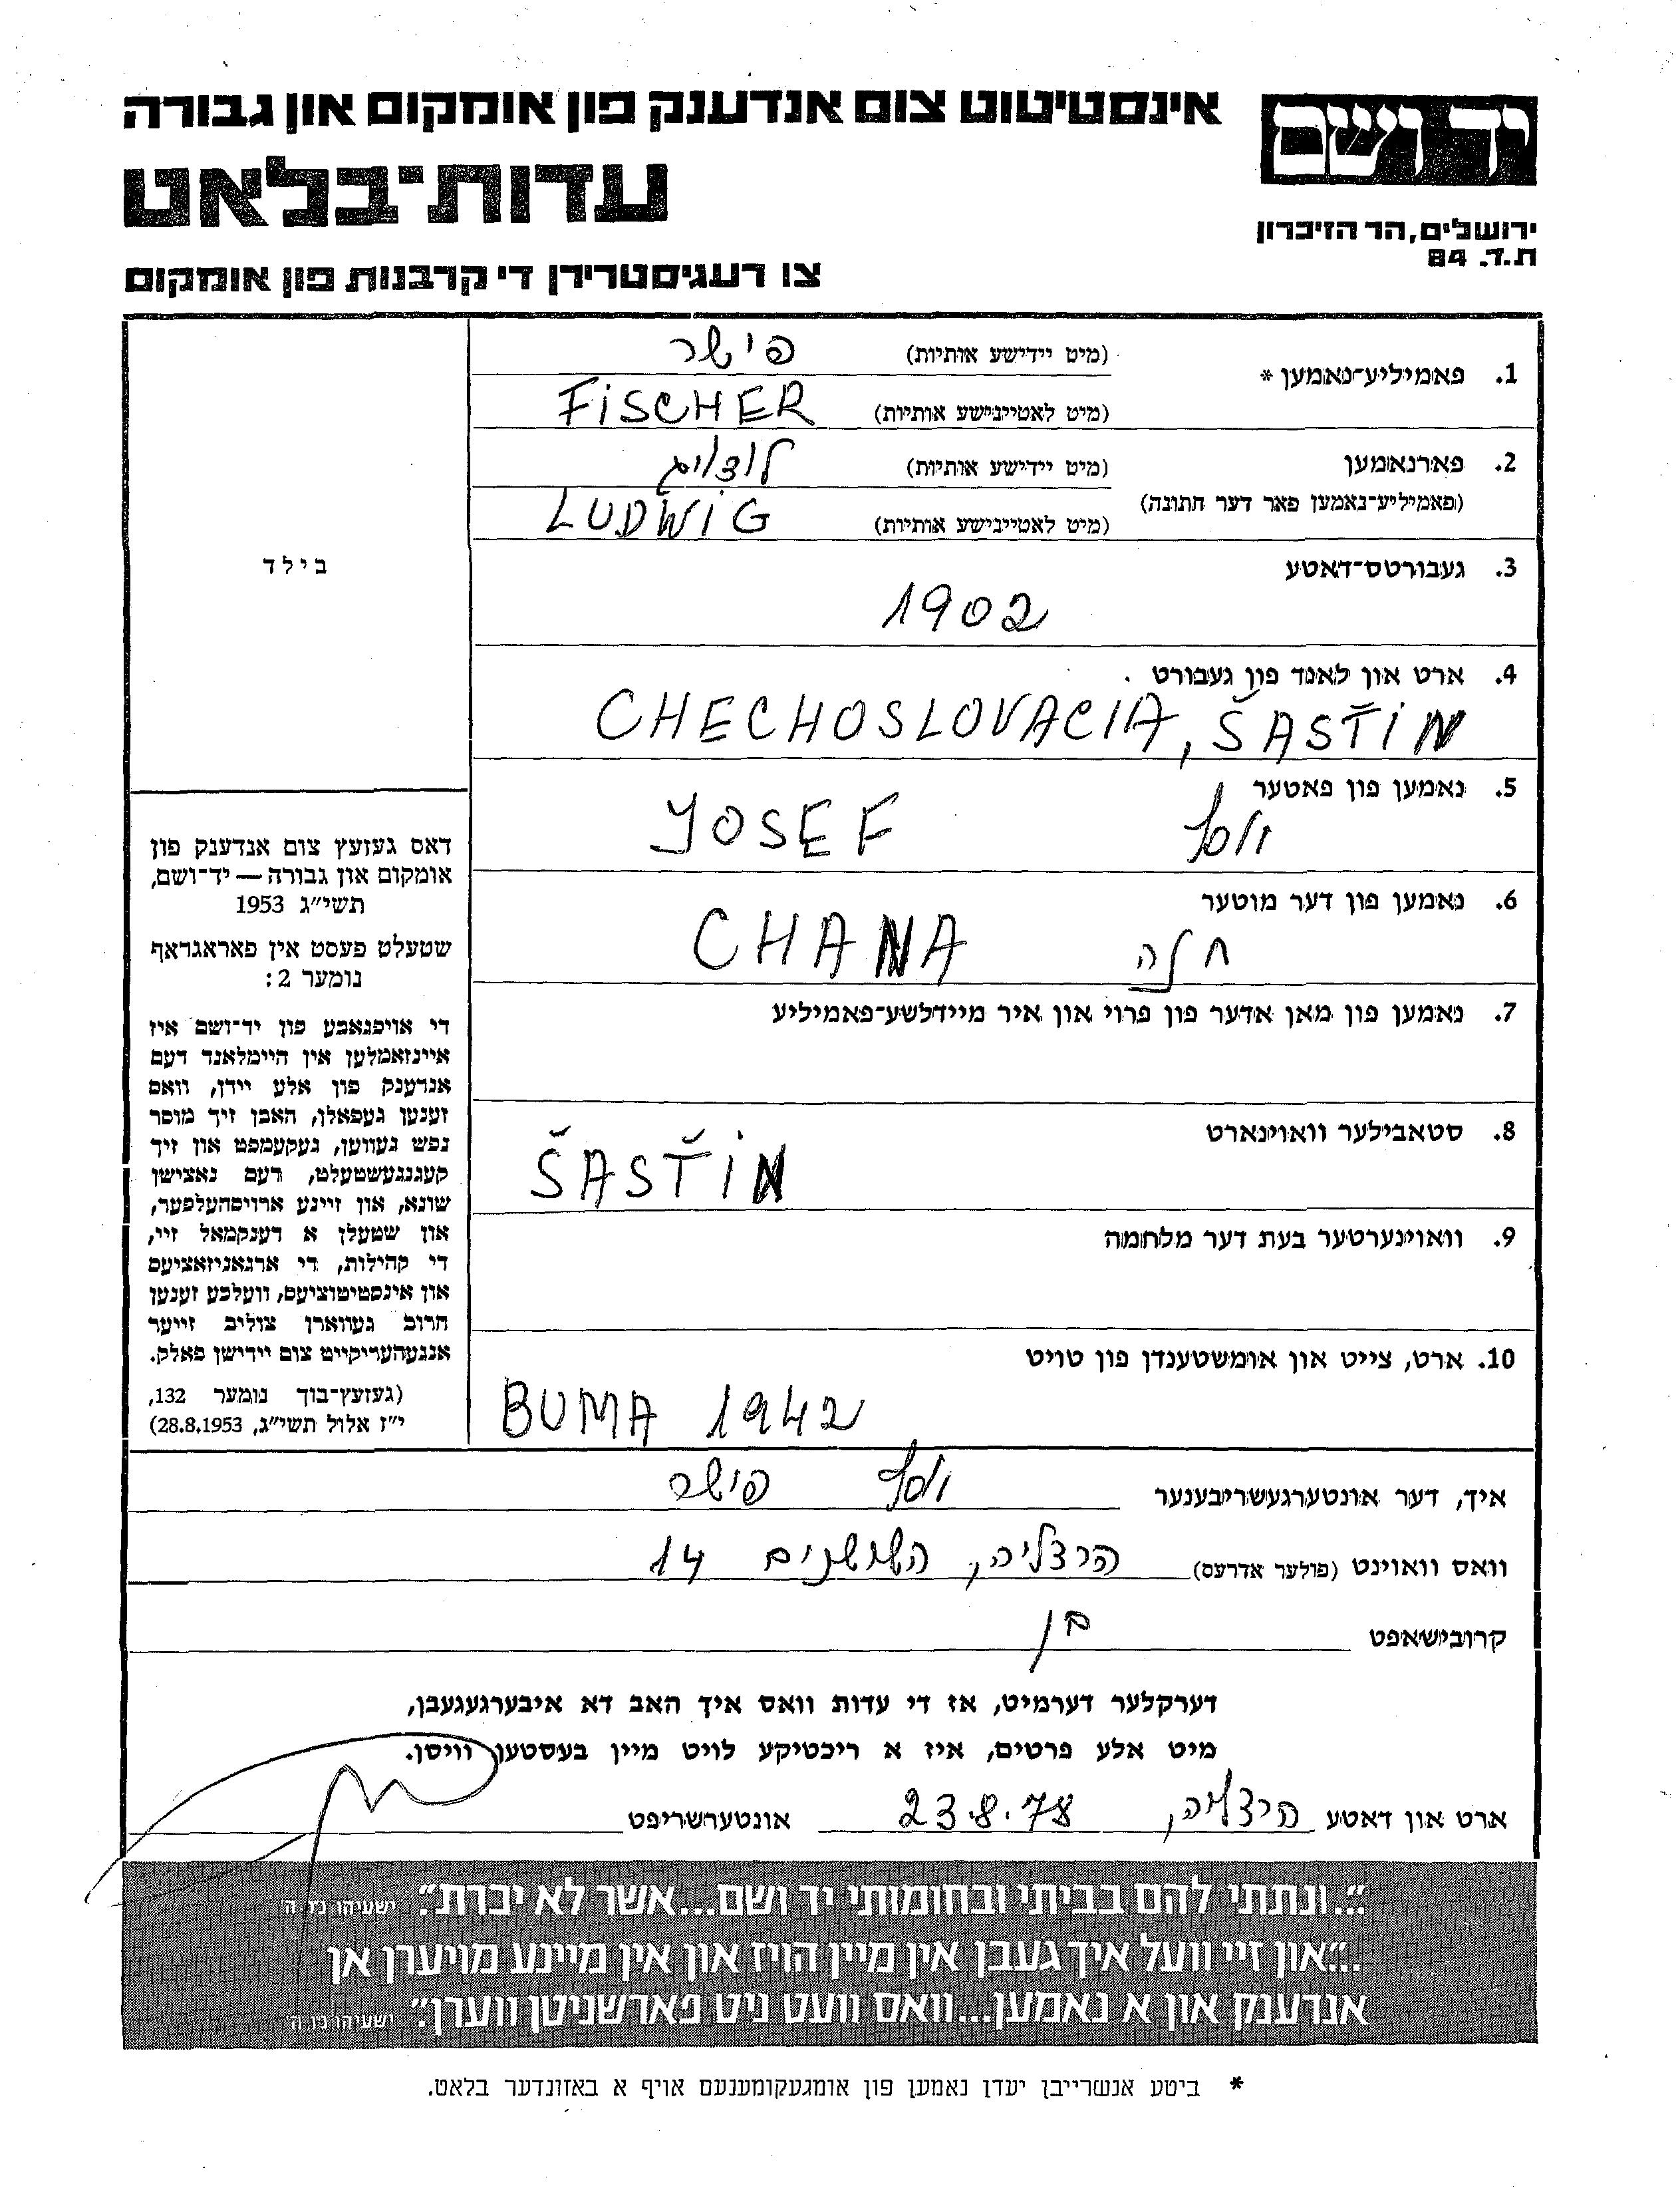 אינסטיטוט צום אנדענק פון אומקום און גבורה
יד ושם
עדות־בלאט
ירושלים, הר הזיכרון
ת.ד. 84
צו רעגיסטרירן די קרבנות פון אומקום
1. פאמיליע־נאמען *
(מיט יידישע אותיות) פישר
(מיט לאטיינישע אותיות) FISCHER
2. פארנאמען
(פאמיליע־נאמען פאר דער חתונה)
(מיט יידישע אותיות) לודויג
(מיט לאטיינישע אותיות) LUDWIG
בילד
3. געבורטס־דאטע
1902
4. ארט און לאנד פון געבורט
CHECHOSLOVACIA, ŠAŠTIN
5. נאמען פון פאטער
יוסף YOSEF
6. נאמען פון דער מוטער
חנה CHANA
7. נאמען פון מאן אדער פון פרוי און איר מיידלשע־פאמיליע
8. סטאבילער וואוינארט
ŠAŠTIN
9. וואוינערטער בעת דער מלחמה
10. ארט, צייט און אומשטענדן פון טויט
BUMA 1942
דאס געזעץ צום אנדענק פון
אומקום און גבורה — יד־ושם,
תשי״ג 1953
שטעלט פעסט אין פאראגראף
נומער 2:
די אויפגאבע פון יד־ושם איז
איינזאמלען אין היימלאנד דעם
אנדענק פון אלע יידן, וואס
זענען געפאלן, האבן זיך מוסר
נפש געווען, געקעמפט און זיך
קעגנגעשטעלט, דעם נאצישן
שונא, און זיינע ארויסהעלפער,
און שטעלן א דענקמאל זיי,
די קהילות, די ארגאניזאציעס
און אינסטיטוציעס, וועלכע זענען
חרוב געווארן צוליב זייער
אנגעהעריקייט צום יידישן פאלק.
(געזעץ־בוך נומער 132,
י״ז אלול תשי״ג, 28.8.1953)
איך, דער אונטערגעשריבענער יוסף פישר
וואס וואוינט (פולער אדרעס) הרצליה, השושנים 14
קרובישאפט בן
דערקלער דערמיט, אז די עדות וואס איך האב דא איבערגעגעבן,
מיט אלע פרטים, איז א ריכטיקע לויט מיין בעסטען וויסן.
ארט און דאטע הרצליה, 23.8.78 אונטערשריפט
״...ונתתי להם בביתי ובחומותי יד ושם...אשר לא יכרת.״ ישעיהו נו, ה
...״און זיי וועל איך געבן אין מיין הויז און אין מיינע מויערן אן
אנדענק און א נאמען...וואס וועט ניט פארשניטן ווערן.״ ישעיהו נו, ה
* ביטע אנשרייבן יעדן נאמען פון אומגעקומענעם אויף א באזונדער בלאט.